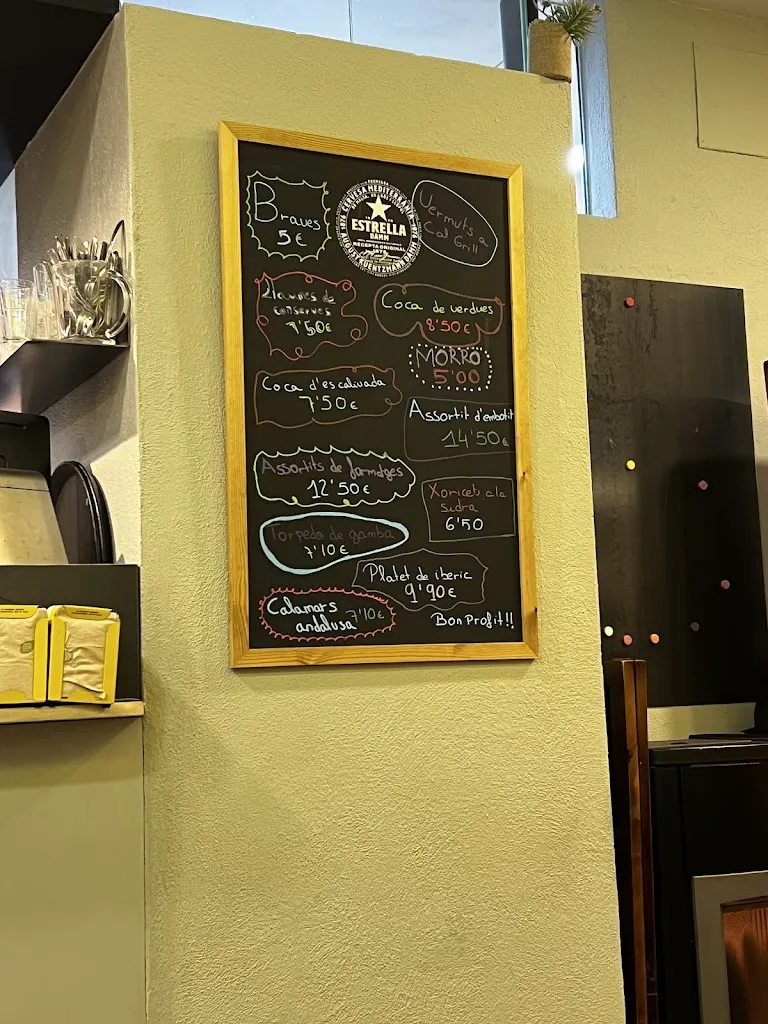 Braves
5€
CERVESA MEDITERRÀNIA
1876
ESTRELLA
DAMM
RECEPTA ORIGINAL
1876
AUGUST KUENTZMANN DAMM
Vermuts a
Cal Grill
Llaunes de
conserves
€
Coca de verdues
8'50€
MORRO
5'00
Coca d'escalivada
7'50€
Assortit d'embotit
14'50€
Assortits de formatges
12'50€
Xoricets a la
sidra
6'50
Torpedo de gamba
7'10€
Platet de iberic
9'90€
Calamars
andalusa 7'10€
Bon Profit!!